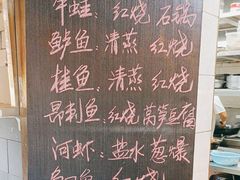 牛蛙：红烧 石锅
鲈鱼：清蒸 红烧
桂鱼：清蒸 红烧
昂刺鱼：红烧 莴笋豆腐
河虾：盐水 葱爆
鱼：红烧